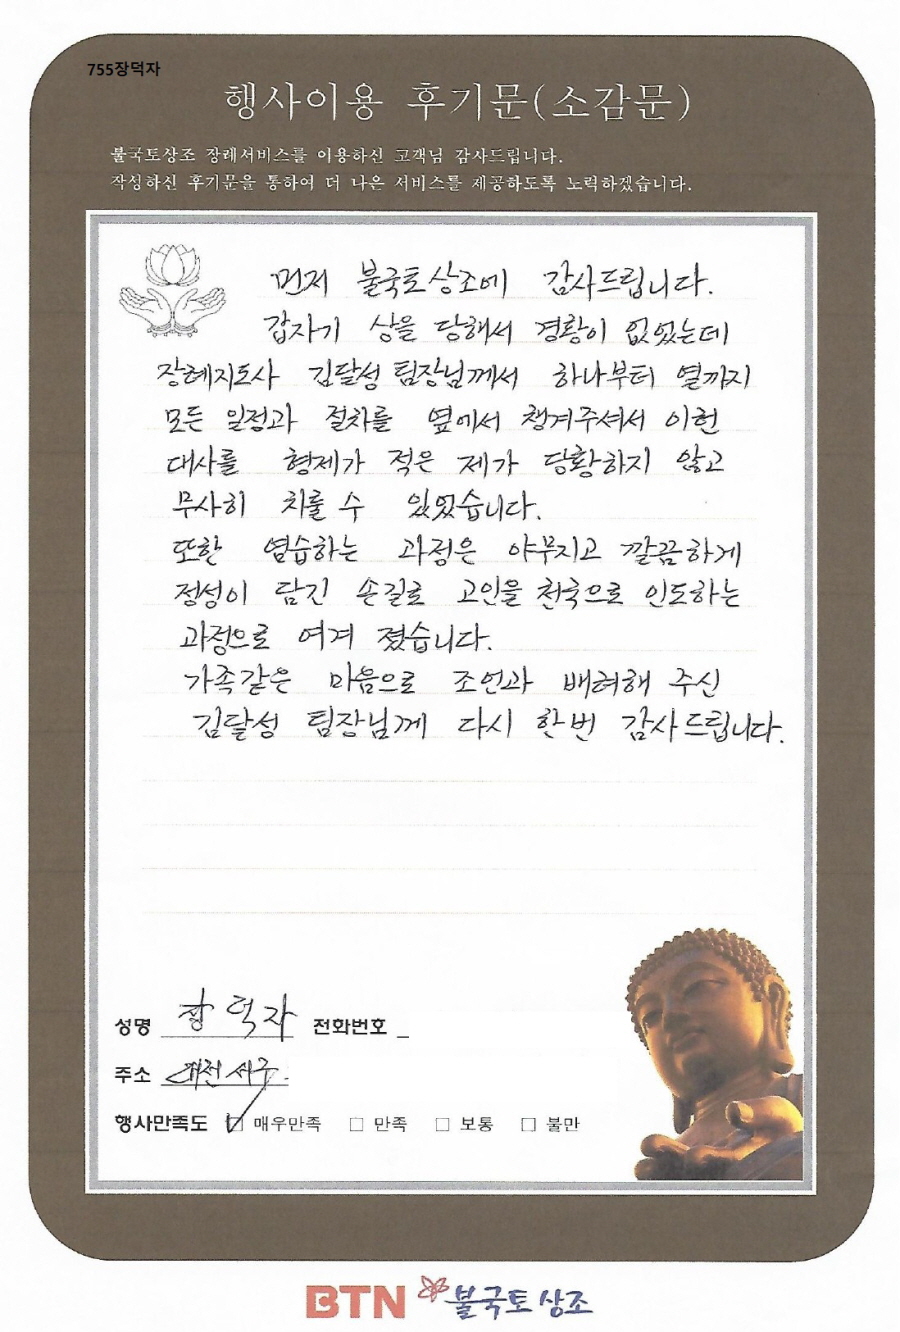 755장덕자
행사이용 후기문(소감문)
불국토상조 장례서비스를 이용하신 고객님 감사드립니다.
작성하신 후기문을 통하여 더 나은 서비스를 제공하도록 노력하겠습니다.
먼저 불국토상조에 감사드립니다.
갑자기 상을 당해서 경황이 없었는데
장혜지도사 김달성 팀장님께서 하나부터 열까지
모든 일정과 절차를 옆에서 챙겨주셔서 이런
대사를 형제가 적은 제가 당황하지 않고
무사히 치룰 수 있었습니다.
또한 염습하는 과정은 야무지고 깔끔하게
정성이 담긴 손길로 고인을 천국으로 인도하는
과정으로 여겨 졌습니다.
가족같은 마음으로 조언과 배혀해 주신
김달성 팀장님께 다시 한번 감사드립니다.
성명 장덕자 전화번호
주소 대전 서구.
행사만족도 ☑ 매우만족 □ 만족 □ 보통 □ 불만
BTN 불국토상조